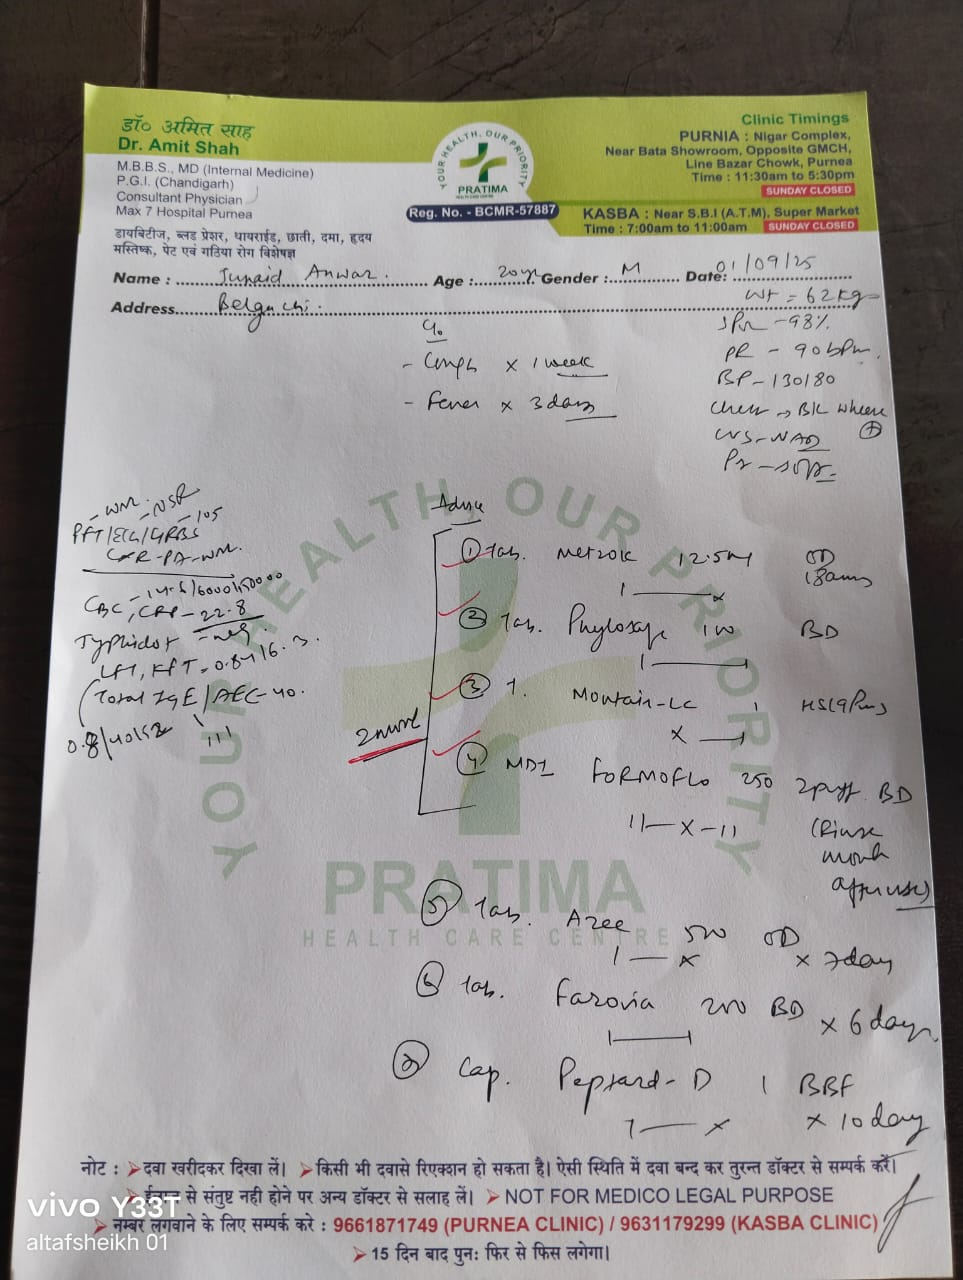 डॉ० अमित साह
Dr. Amit Shah
M.B.B.S., MD (Internal Medicine)
P.G.I. (Chandigarh)
Consultant Physician
Max 7 Hospital Purnea
डायबिटीज, ब्लड प्रेशर, थायराईड, छाती, दमा, हृदय
मस्तिष्क, पेट एवं गठिया रोग विशेषज्ञ
YOUR HEALTH, OUR PRIORITY
PRATIMA
HEALTH CARE CENTRE
Reg. No. - BCMR-57887
Clinic Timings
PURNIA : Nigar Complex,
Near Bata Showroom, Opposite GMCH,
Line Bazar Chowk, Purnea
Time : 11:30am to 5:30pm
SUNDAY CLOSED
KASBA : Near S.B.I (A.T.M), Super Market
Time : 7:00am to 11:00am SUNDAY CLOSED
Name : Junaid Anwar. Age : 20yr Gender : M Date: 01/09/25
Address Belguchi.
Wt = 62kg
c/o
SPO2 -98%
- Cough x 1 week
PR - 90bpm.
- Fever x 3 days
BP-130/80
Chest → B/L wheeze +
CVS-NAD
P/A-soft
- WNL - NSR
PFT/ECG/GRBS -105
CXR-PA-WNL
CBC, CRP-22.8
Typhidot - neg.
LFT, KFT
Total IgE/AEC-40.
Advice
① Tab. Metzok 12.5mg OD (8am)
1 — x
② Tab. BD
1 — 1
③ T. Montair-LC 1 HS(9pm)
x — 1
④ MDI FORMOFLO 250 2puff BD
11 — x — 11 (Rinse mouth after use)
⑤ Tab. Azee 500 OD
1 — x x 7day
⑥ Tab. Farovia 200 BD x 6 days
1 — 1
⑦ Cap. Peptard-D 1 BBF
1 — x x 10 day
YOUR HEALTH, OUR PRIORITY
PRATIMA
HEALTH CARE CENTRE
नोट : ➤ दवा खरीदकर दिखा लें। ➤ किसी भी दवासे रिएक्शन हो सकता है। ऐसी स्थिति में दवा बन्द कर तुरन्त डॉक्टर से सम्पर्क करें।
से संतुष्ट नही होने पर अन्य डॉक्टर से सलाह लें। ➤ NOT FOR MEDICO LEGAL PURPOSE
➤ नम्बर लगवाने के लिए सम्पर्क करे : 9661871749 (PURNEA CLINIC) / 9631179299 (KASBA CLINIC)
➤ 15 दिन बाद पुनः फिर से फिस लगेगा।
vivo Y33T
altafsheikh 01